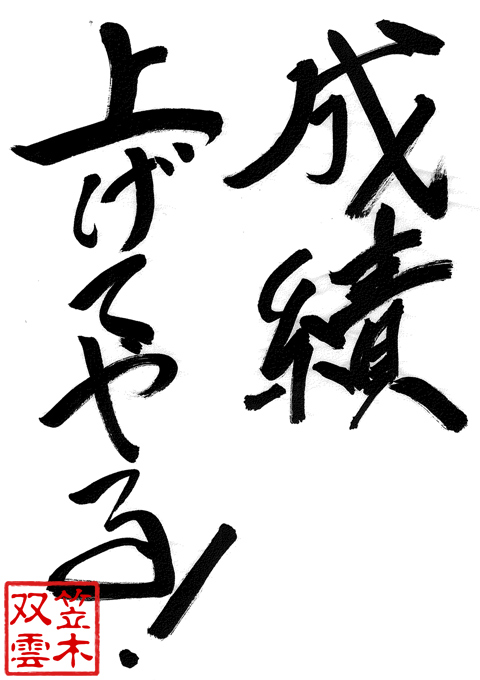 成績
上げてやる!
笠木
双雲